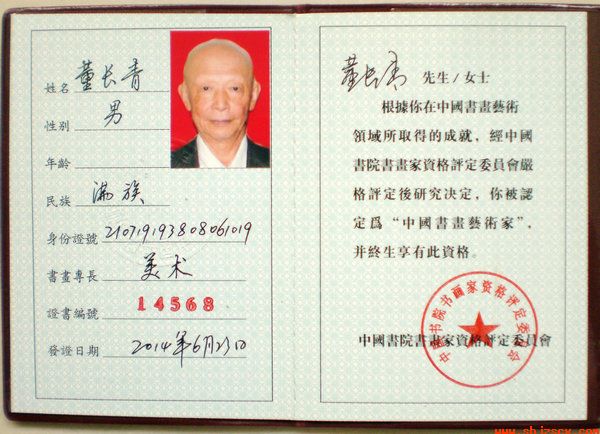 姓名 董长青
性别 男
年齡
民族 满族
身份證號 210719193808061019
書畫專長 美术
證書編號 14568
發證日期 2014年6月23日
董长青 先生/女士
根據你在中國書畫藝術
領域所取得的成就，經中國
書院書畫家資格評定委員會嚴
格評定後研究决定，你被認
定爲“中國書畫藝術家”，
并終生享有此資格。
中国书院书画家资格评定委员会
中國書院書畫家資格評定委員會